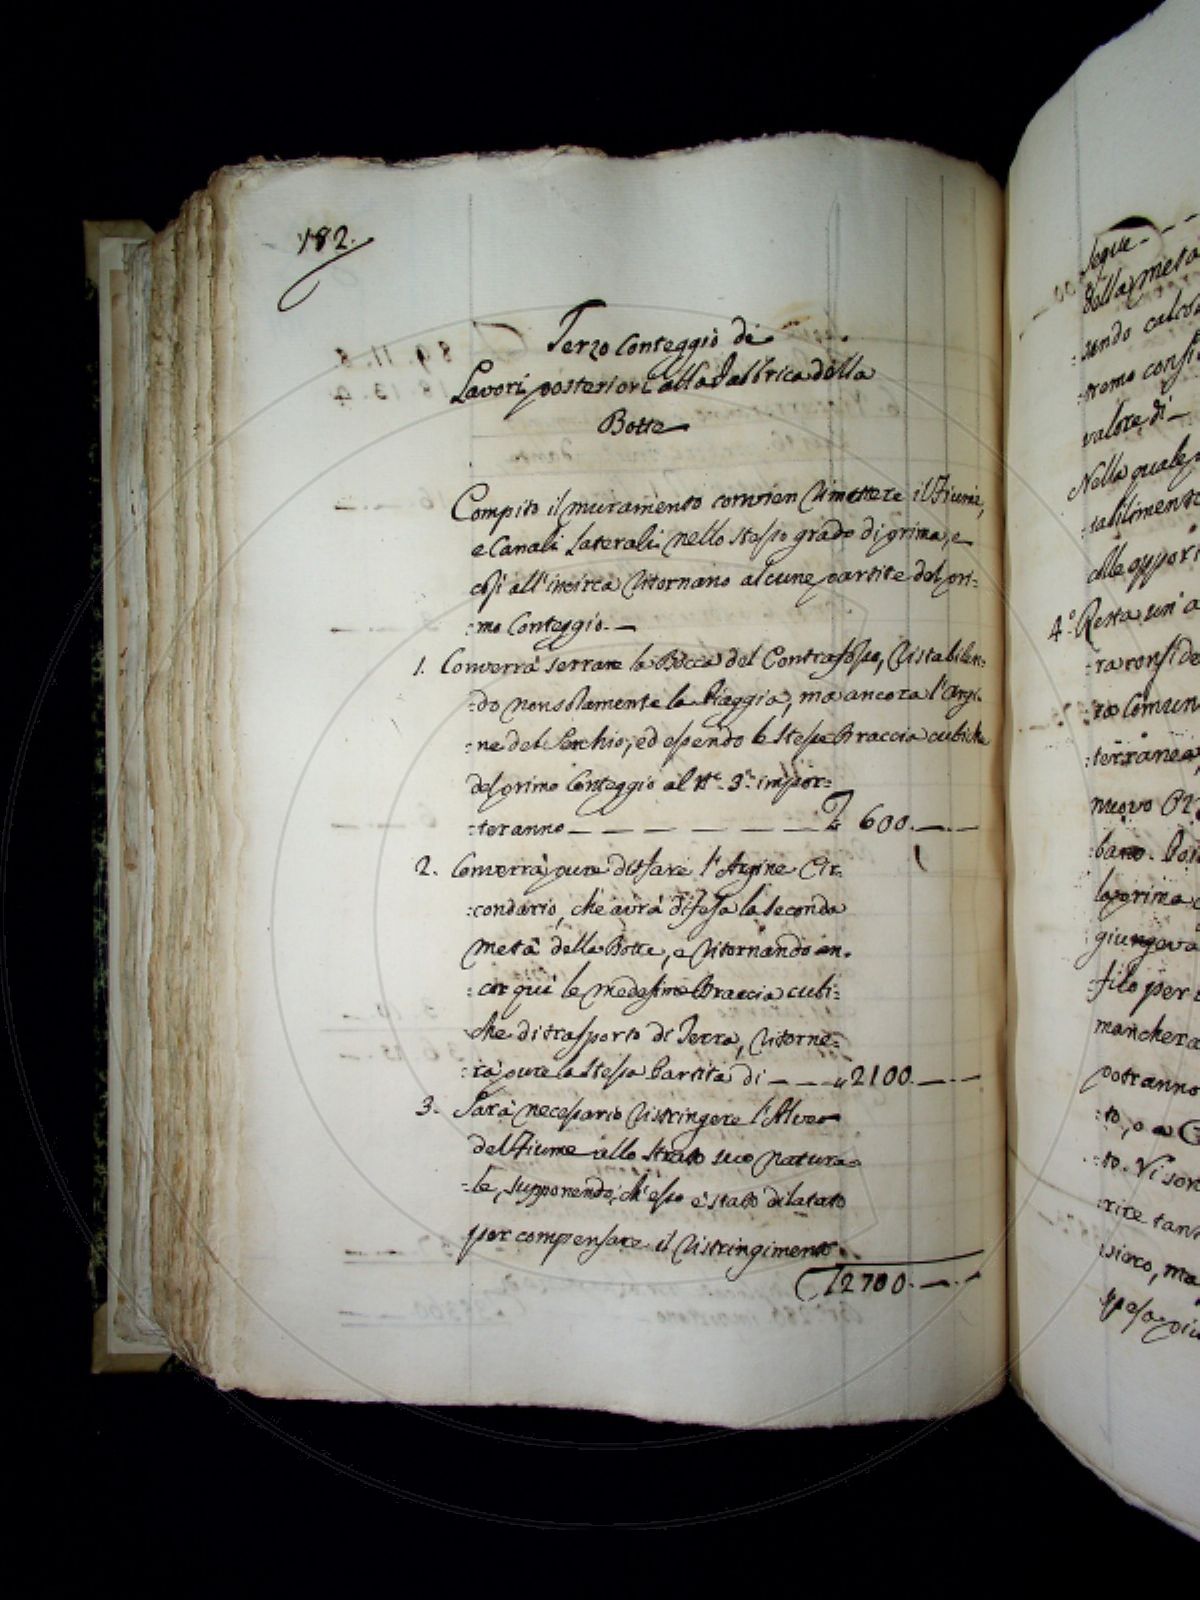 182.
Terzo Conteggio de
Lavori posteriori alla Fabbrica della
Botte
Compito il muramento convien rimettere il Fiume,
e Canali Laterali nello stesso grado di prima, e
così all'incirca ritornano alcune partite del pri-
:mo Conteggio. —
1. Converrà serrare la Bocca del Contrafosso, ristabilen:
:do non solamente la Piaggia, ma ancora l'Argi-
:ne del Serchio, ed essendo le stesse Braccia cubiche
del primo Conteggio al N.º 3.º impor:
:teranno — — — — — — £ 600. — —
2. Converrà pure disfare l'Argine Cir:
:condario, che avrà difesa la seconda
metà della Botte, e ritornando an.
:cor qui le medesime Braccia cubi:
che di trasporto di Terra, ritorne:
:rà pure la stessa Partita di — — — „ 2100. — —
3. Sarà necessario ristringere l'Alveo
del Fiume allo stato suo natura
:le, supponendo, ch'esso è stato dilatato
per compensare il ristringimento
£ 2700. — —
Segue - - -
della meta
sendo
:tremo
valore di —
Nella quale
alle
4.º Resta un' a
:ra
:ra Comun
:terranea,
nuovo
:bano.
la prima
giungeva
:filo per
manchera
potranno
:to, o a
:to. Vi son
:rire tan
:sico, ma
spesa più